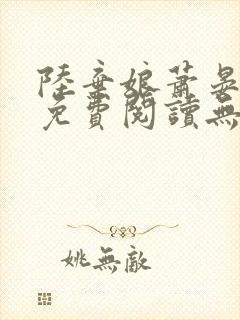 陸棄娘蕭晏
免費閱讀無
姚無敵